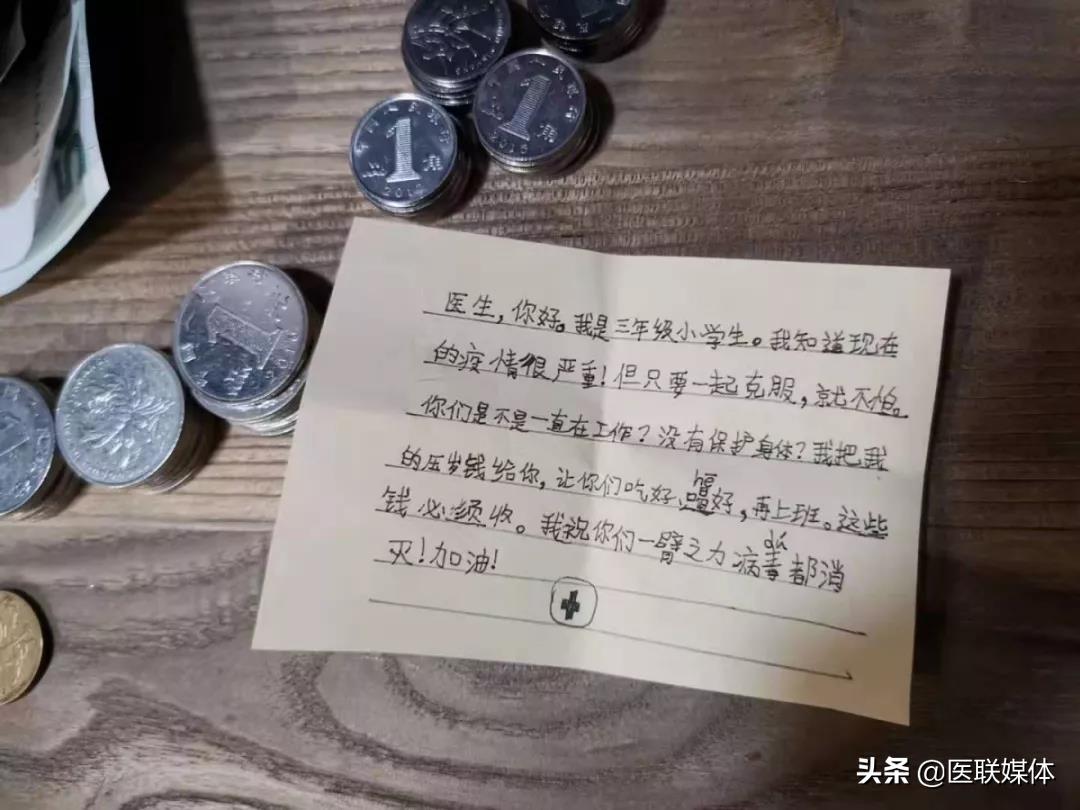 医生，你好。我是三年级小学生。我知道现在
的疫情很严重！但只要一起克服，就不怕。
你们是不是一直在工作？没有保护身体？我把我
的压岁钱给你，让你们吃好、喝好，再上班。这些
钱必须收。我祝你们一臂之力病毒都消
灭！加油！
1
角
2015
1
角
1
1
头条 @医联媒体